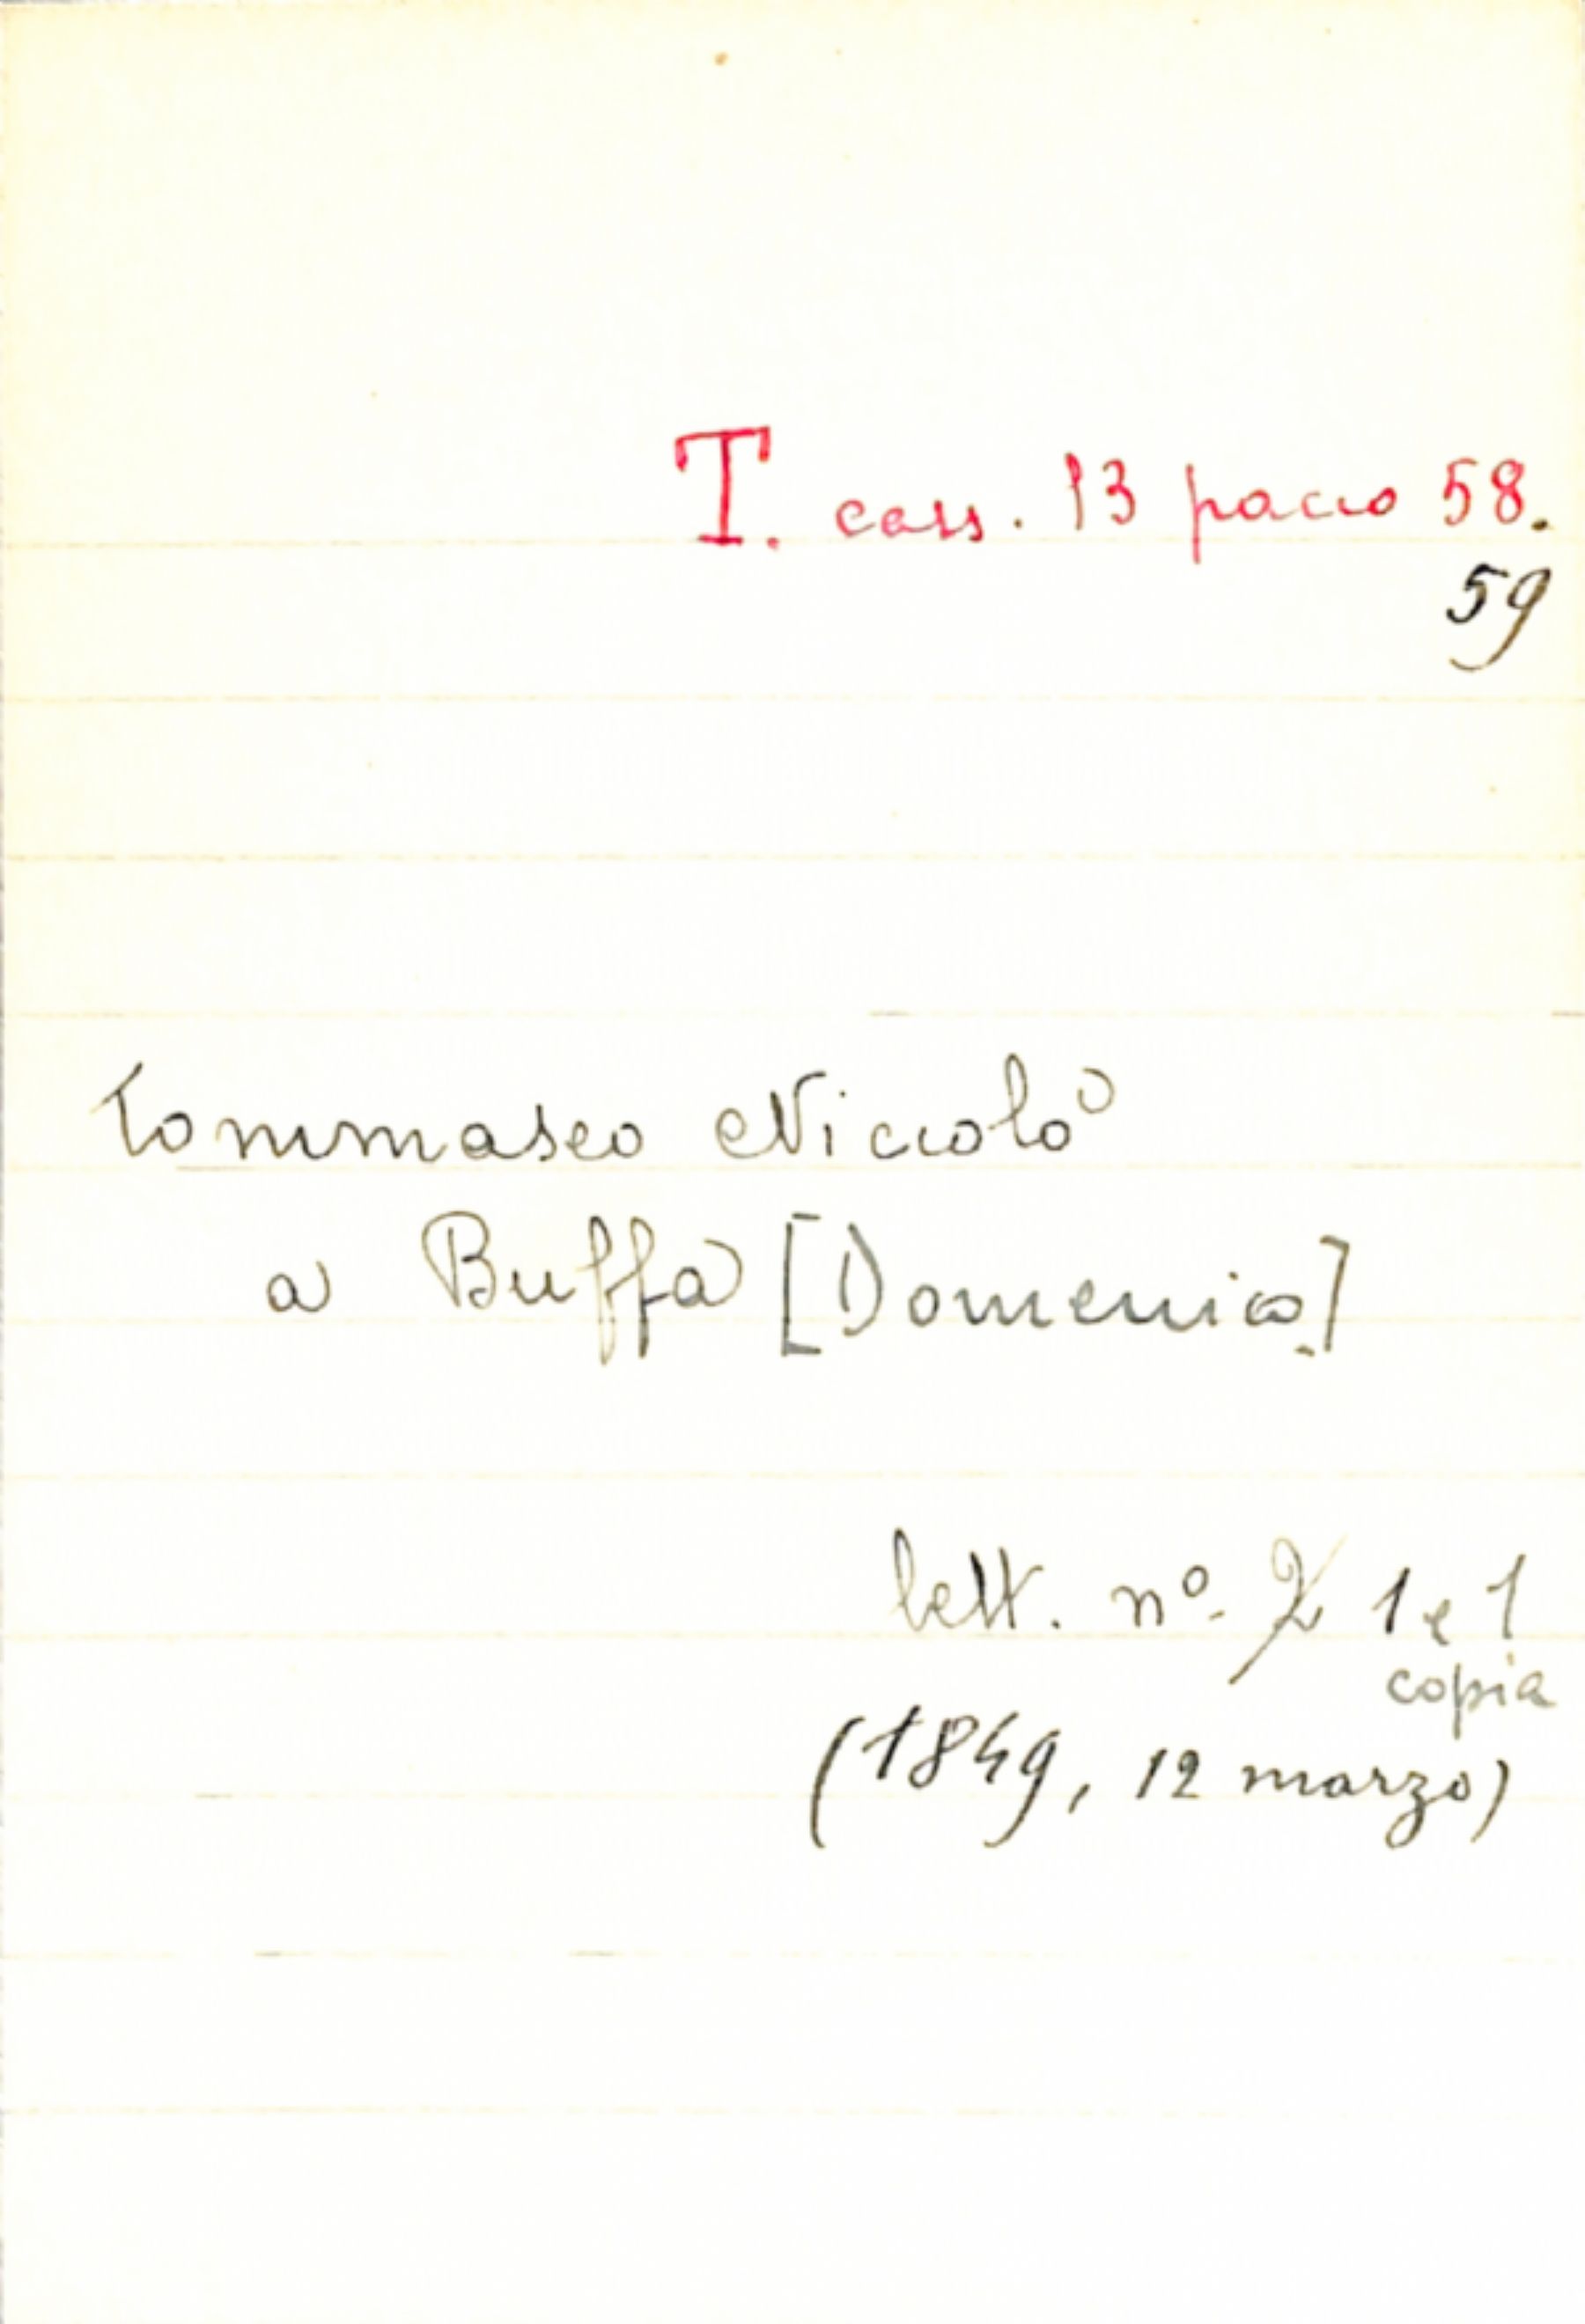 T. cass. 13 pacco 58.
59
Tommaseo Niccolò
a Buffa [Domenico]
lett. nº. 2 1 e 1
copia
(1849, 12 marzo)